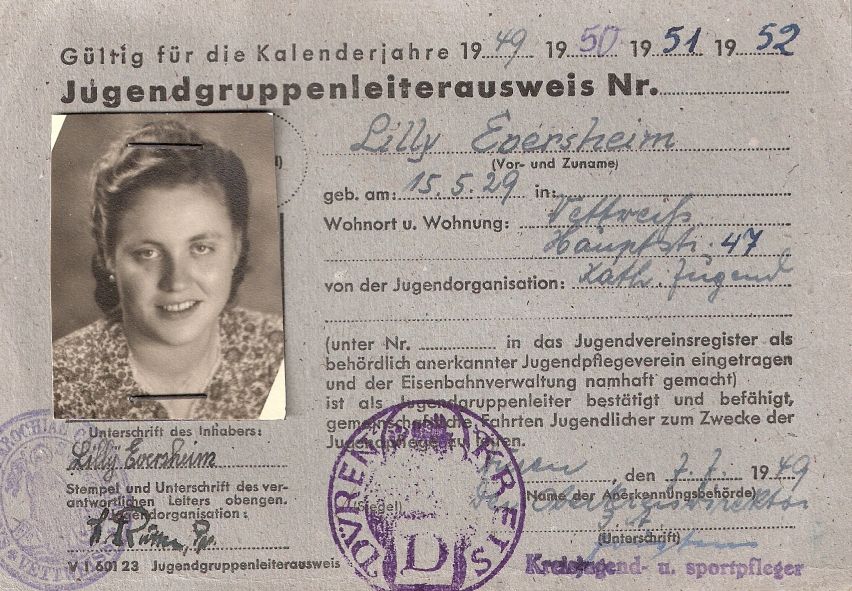 Gültig für die Kalenderjahre 1949 1950 1951 1952
Jugendgruppenleiterausweis Nr.
Lilly Eversheim
(Vor- und Zuname)
geb. am: 15.5.29 in:
Wohnort u. Wohnung: Vettweiß
Hauptstr. 47
von der Jugendorganisation: Kath. Jugend
(unter Nr. in das Jugendvereinsregister als
behördlich anerkannter Jugendpflegeverein eingetragen
und der Eisenbahnverwaltung namhaft gemacht)
ist als Jugendgruppenleiter bestätigt und befähigt,
gemeinschaftliche Fahrten Jugendlicher zum Zwecke der
Jugendpflege zu leiten.
Unterschrift des Inhabers:
Lilly Eversheim
Stempel und Unterschrift des ver-
antwortlichen Leiters obengen.
Jugendorganisation:
V I 601 23 Jugendgruppenleiterausweis
Düren, den 7.7. 1949
Der Oberkreisdirektor
(Name der Anerkennungsbehörde)
(Siegel)
(Unterschrift)
Kreisjugend- u. sportpfleger
KREIS DÜREN
D